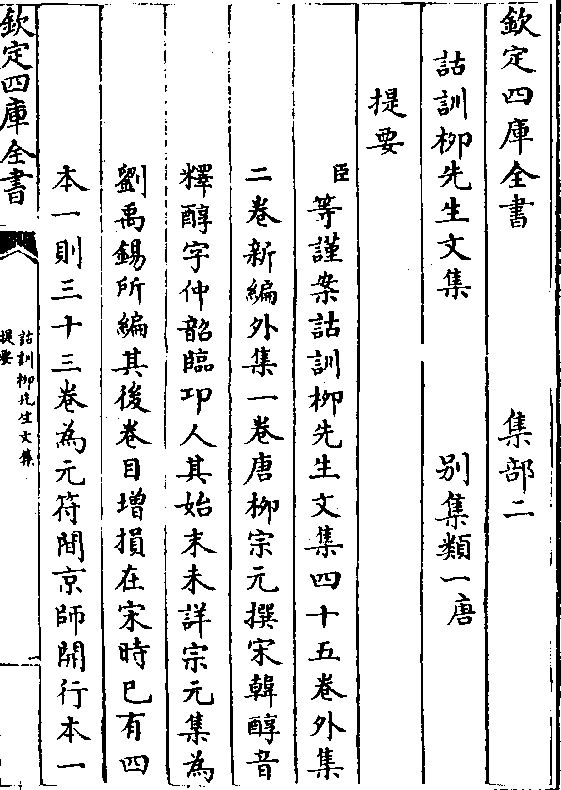 欽定四庫全書　集部二
詁訓栁先生文集　别集類一唐
提要
臣等謹案詁訓栁先生文集四十五卷外集
二卷新編外集一卷唐栁宗元撰宋韓醇音
釋醇字仲韶臨邛人其始末未詳宗元集為
劉禹錫所編其後卷目增損在宋時已有四
本一則三十三卷為元符間京師開行本一
欽定四庫全書
詁訓栁先生文集
提要